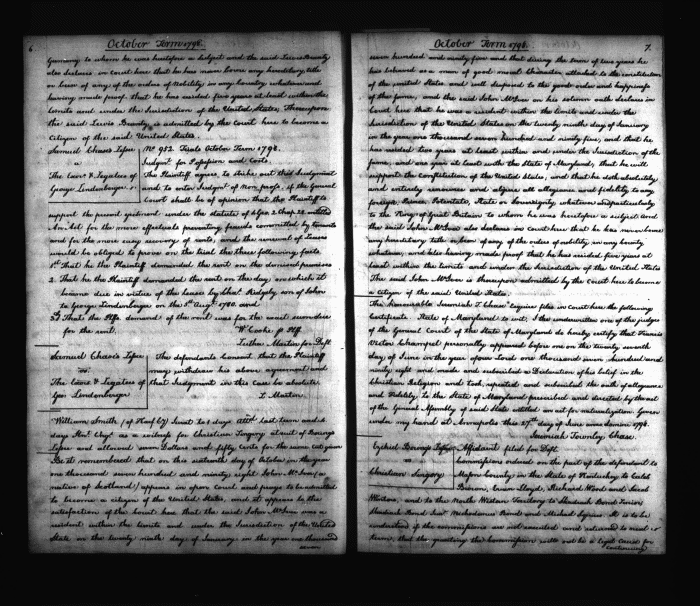 6
October Term 1798.
Germany to whom he was heretofore a subject and the said Lewis Bounty
also declares in Court here that he has never borne any hereditary title
or been of any of the orders of Nobility in any Country whatever and
having made proof that he has resided two years at least within the
limits and under the Jurisdiction of the United States, Thereupon
the said Lewis Bounty is admitted by the Court here to become a
Citizen of the said United States.
Samuel Chase's Lessee
a
The Exors & Legatees of
George Lindenberger
No. 952. Trials October Term 1798.
Judgmt. for Possession and Costs.
The Plaintiff agrees to strike out this Judgment
and to enter Judgmt. of Non pross. if the General
Court shall be of opinion that the Plaintiff to
support the present ejectment under the statute of 4 Geo. 2 Chap. 28 entitled
An Act for the more effectual preventing frauds committed by tenants
and for the more easy recovery of rents, and the renewal of leases
would be obliged to prove on the trial the three following facts
1st That he the Plaintiff demanded the rent on the demised premises
2 That he the Plaintiff demanded the rent on the day on which it
became due in virtue of the lease by Chas. Ridgely son of John
to George Lindenberger on the 5th Augt. 1780. and
3d That the Plffs. demand of the rent was for the exact sum due
for the rent.
W. Cooke p Plff.
Luther Martin for Deft.
Samuel Chase's Lessee
vs.
The Exors & Legatees of
Geo. Lindenberger
The defendants consent that the Plaintiff
may withdraw his above agreement and
that Judgment in this case be absolute.
L. Martin.
William Smith (of Hanf Cty) Summt. 1 days Attd. last term and
days thit. Chgd. as a witness for Christian Gregory at suit of Bonny's
Lessee and allowed seven Dollars and fifty Cents for the same
Be it remembered that on the sixteenth day of October in the year
one thousand seven hundred and ninety eight John McIver (a
native of Scotland) appears in open Court and prays to be admitted
to become a Citizen of the United States, and it appears to the
satisfaction of the Court here that the said John McIver was a
resident within the limits and under the Jurisdiction of the United
States on the twenty ninth day of January in the year one thousand
seven
7.
October Term 1798.
seven hundred and ninety five and that during the term of two years he
has behaved as a man of good moral Character attached to the constitution
of the united States and well disposed to the good order and happiness
of the same, and the said John McIver on his solemn oath declares in
Court here that he was resident within the limits and under the
Jurisdiction of the United States on the twenty ninth day of January
in the year one thousand seven hundred and ninety five, and that he
has resided two years at least within and under the Jurisdiction of the
same, and one year at least with the State of Maryland, that he will
support the constitution of the United States, and that he doth absolutely
and entirely renounce and abjure all allegiance and fidelity to any
foreign Prince, Potentate, State or Sovereignty whatever and particularly
to the King of Great Britain to whom he was heretofore a subject and
the said John McIver also declares in Court here that he has never borne
any hereditary title or been of any of the orders of nobility, in any Country
whatever, and also having made proof that he has resided five years at
least within the limits and under the Jurisdiction of the United States
The said John McIver is thereupon admitted by the Court here to become
a citizen of the said United States.
The honourable Jeremiah T. Chase Esquire files in Court here the following
Certificate. State of Maryland to wit. I the underwritten one of the judges
of the General Court of the State of Maryland do hereby certify that Francis
Victor Champrel personally appeared before me on the twenty seventh
day of June in the year of our Lord one thousand seven hundred and
ninety eight and made and subscribed a Declaration of his belief in the
Christian Religion and took, repeated and subscribed the oath of allegiance
and Fidelity to the State of Maryland prescribed and directed by the act
of the General Assembly of said State entitled an act for naturalization. Given
under my hand at Annapolis this 27th day of June anno Domini 1798.
Jeremiah Townley Chase.
Ezekiel Bonny's Lessee
Christian Gregory
Affidavit filed for Deft.
Commissions ordered on the part of the defendant to
Nelson County in the State of Kentucky to Caleb
and Jacob
Western, and to the North Western Territory to Shadrach Bond Junior
Shadrach Bond Senr. Nicholas
and Michael
Esquires. It is to be
understood if the commissions are not executed and returned to next
term, that the granting the Commission will not be a legal cause for
continuing